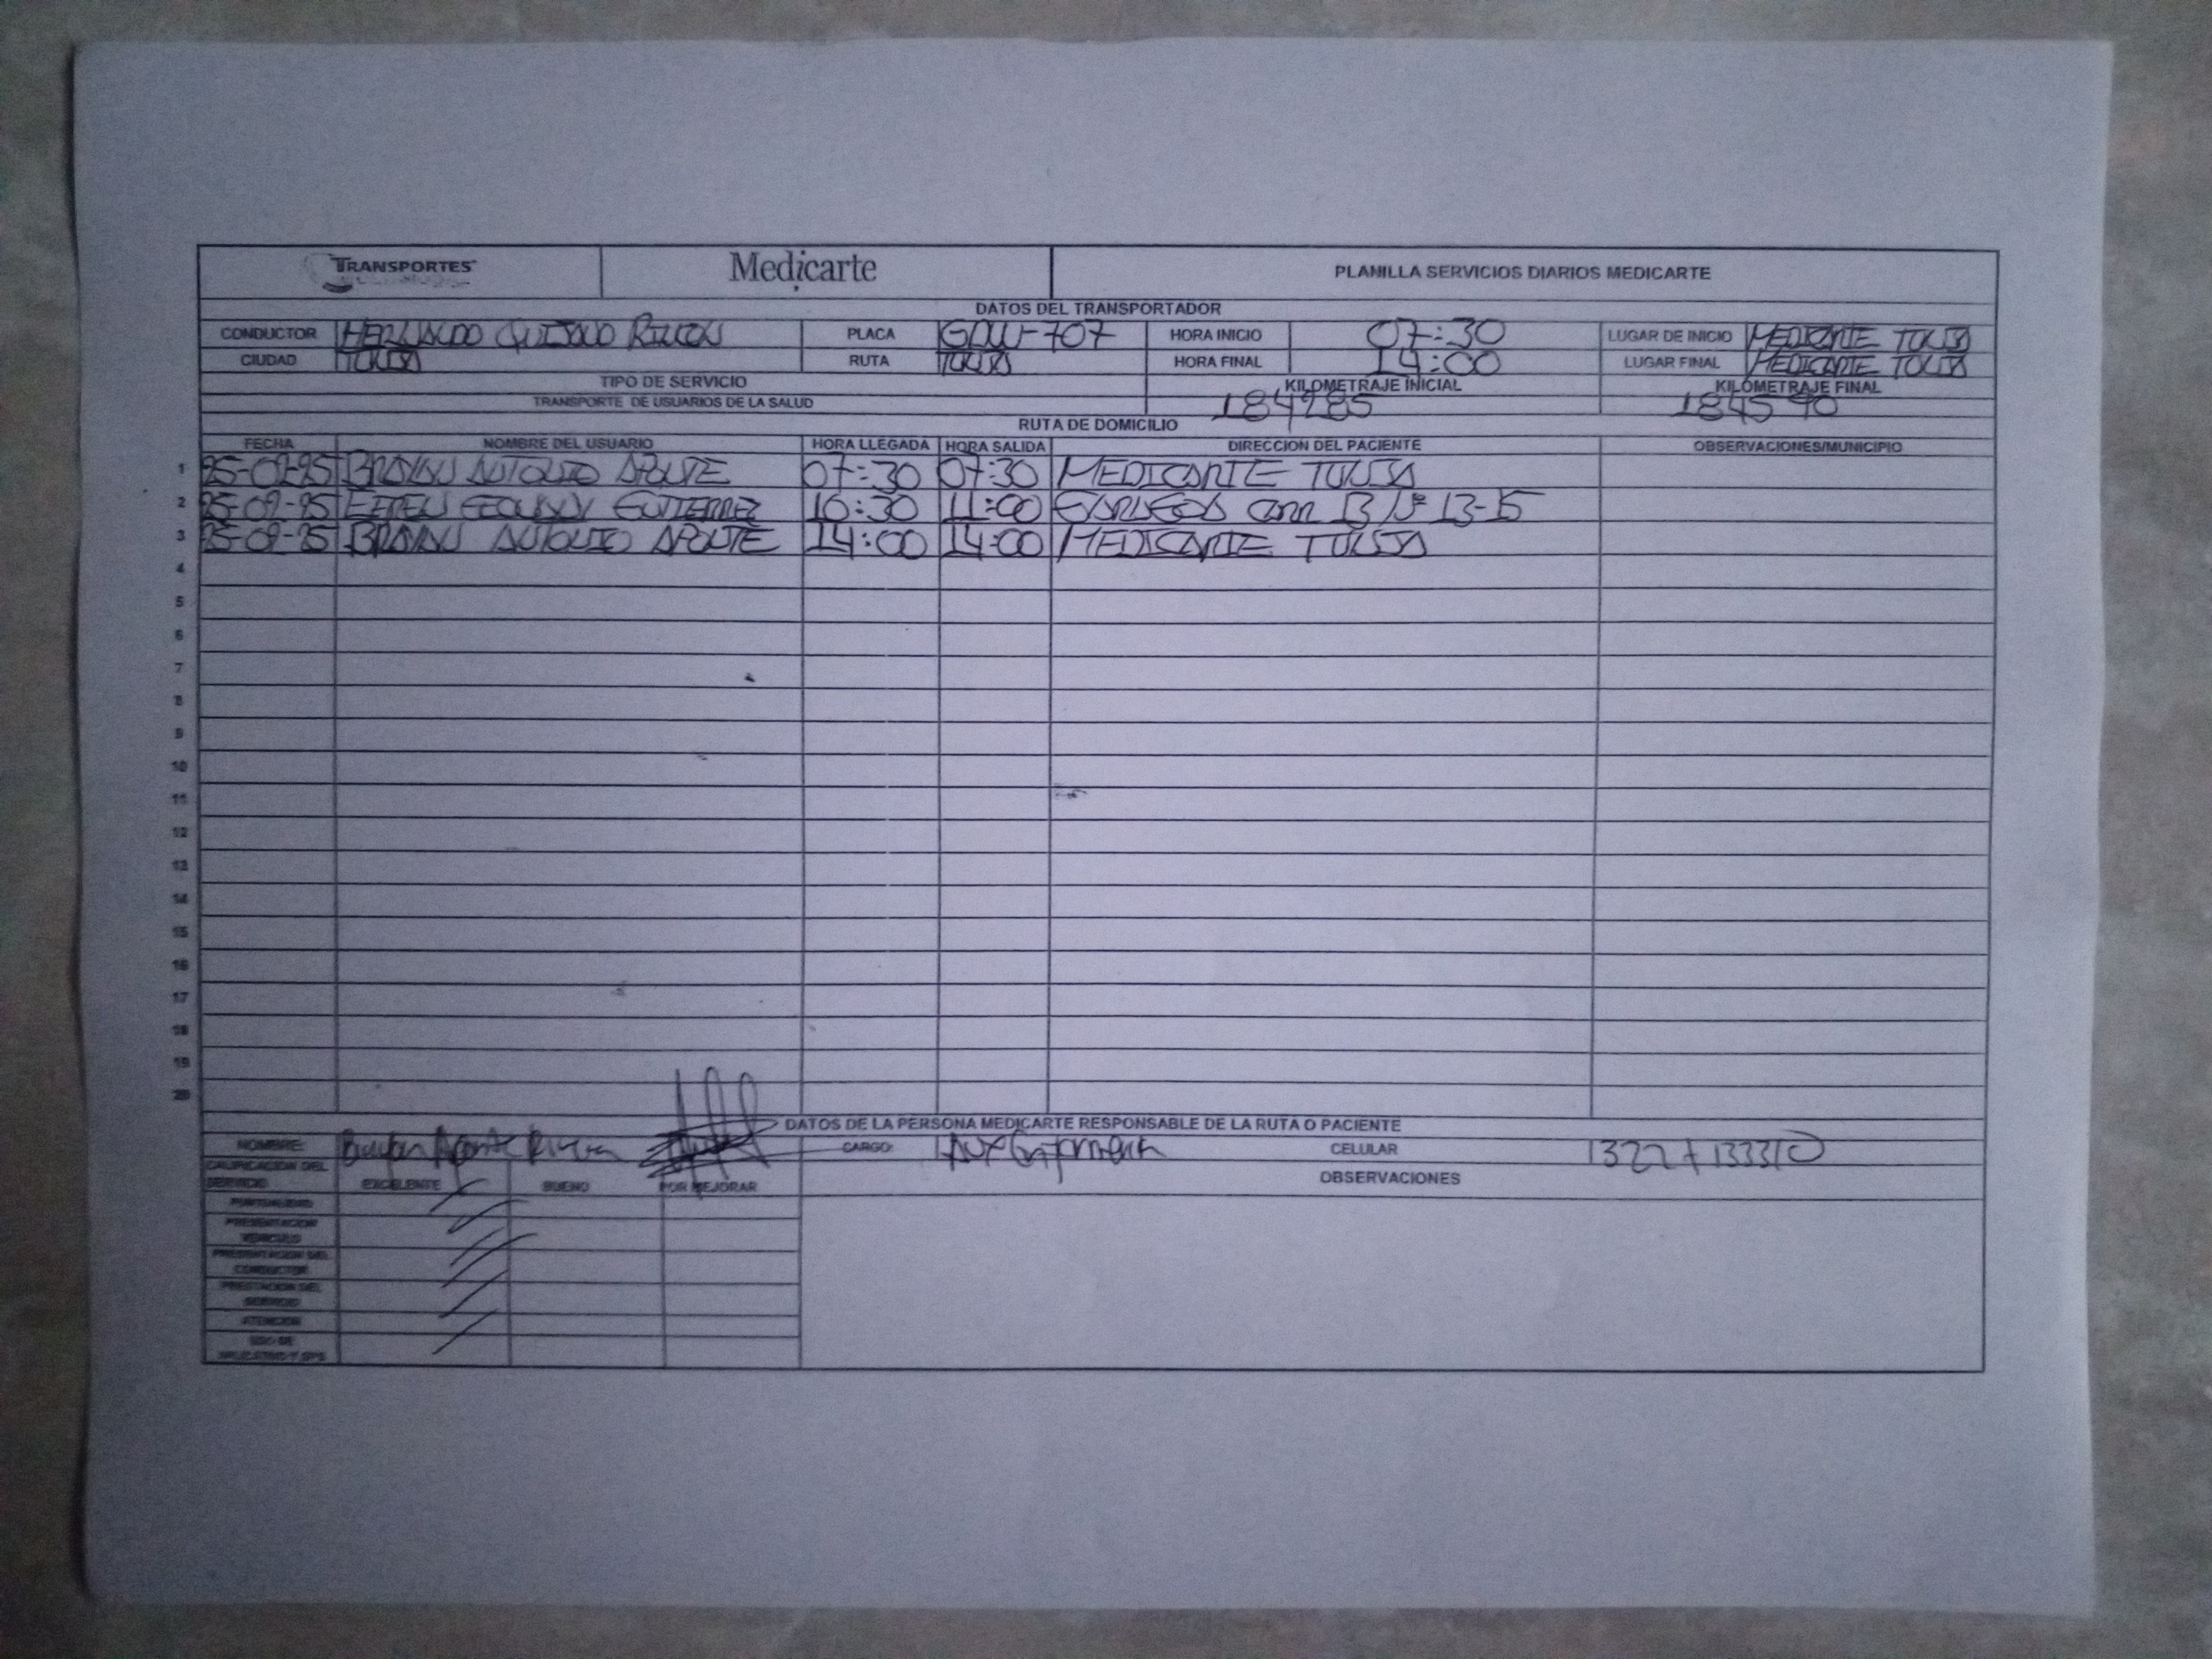 TRANSPORTES Medicarte PLANILLA SERVICIOS DIARIOS MEDICARTE
DATOS DEL TRANSPORTADOR
CONDUCTOR HERNANDO QUIJANO RINCON PLACA GDW-707 HORA INICIO 07:30 LUGAR DE INICIO MEDICARTE TULUA
CIUDAD TULUA RUTA TULUA HORA FINAL 14:00 LUGAR FINAL MEDICARTE TULUA
TIPO DE SERVICIO KILOMETRAJE INICIAL KILOMETRAJE FINAL
TRANSPORTE DE USUARIOS DE LA SALUD 184285 184590
RUTA DE DOMICILIO
FECHA NOMBRE DEL USUARIO HORA LLEGADA HORA SALIDA DIRECCION DEL PACIENTE OBSERVACIONES/MUNICIPIO
1 BRAYAN ANTONIO APONTE 07:30 07:30 MEDICARTE TULUA
2 GUTIERREZ 10:30 11:00 13 Nº 13-15
3 BRAYAN ANTONIO APONTE 14:00 14:00 MEDICARTE TULUA
4
5
6
7
8
9
10
11
12
13
14
15
16
17
18
19
20
DATOS DE LA PERSONA MEDICARTE RESPONSABLE DE LA RUTA O PACIENTE
NOMBRE: Brayan Aponte Rivera CARGO: Aux Enfermeria CELULAR
CALIFICACION DEL SERVICIO EXCELENTE BUENO POR MEJORAR OBSERVACIONES
PUNTUALIDAD
PRESENTACION VEHICULO
PRESENTACION DEL CONDUCTOR
PRESTACION DEL SERVICIO
ATENCION
USO DE APLICATIVO Y GPS